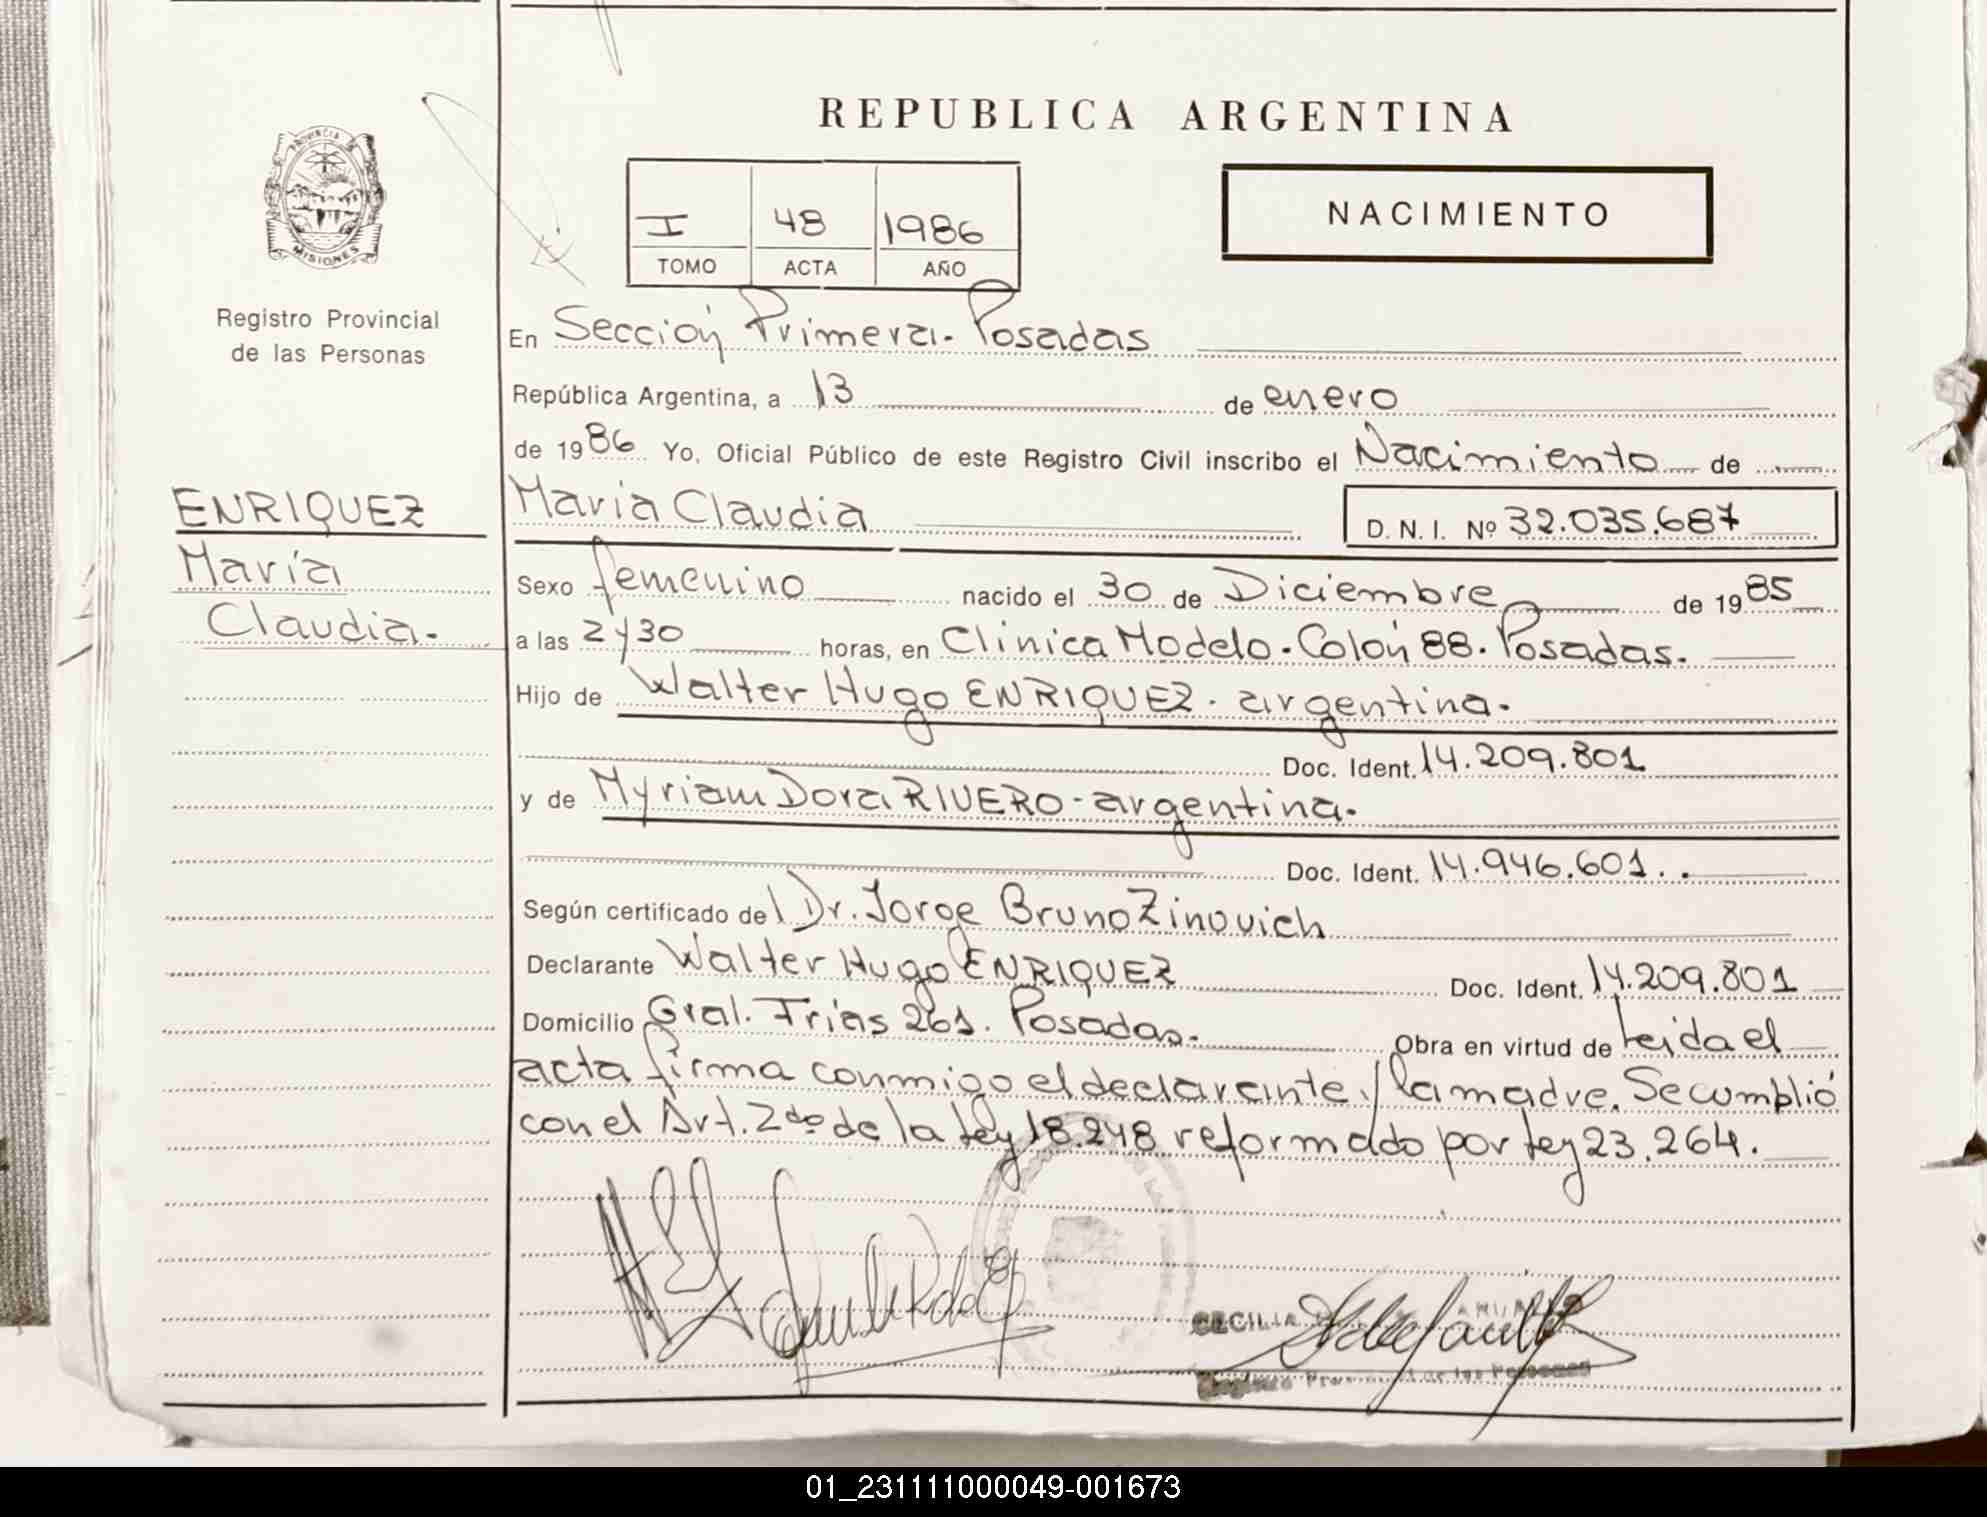 REPUBLICA ARGENTINA
PROVINCIA
MISIONES
I 48 1986
TOMO ACTA AÑO
NACIMIENTO
Registro Provincial
de las Personas
En Sección Primera. Posadas
República Argentina, a 13 de enero
de 1986 Yo, Oficial Público de este Registro Civil inscribo el Nacimiento de
ENRIQUEZ
María
Claudia.
María Claudia
D. N. I. Nº 32.035.687
Sexo femenino nacido el 30 de Diciembre de 1985
a las 2y30 horas, en Clínica Modelo. Colón 88. Posadas.
Hijo de Walter Hugo ENRIQUEZ. argentina.
Doc. Ident. 14.209.801
y de Myriam Dora RIVERO - argentina.
Doc. Ident. 14.946.601..
Según certificado del Dr. Jorge Bruno Zinovich
Declarante Walter Hugo ENRIQUEZ Doc. Ident. 14.209.801
Domicilio Gral. Frias 261. Posadas. Obra en virtud de Leida el
acta firma conmigo el declarante y la madre. Se cumplió
con el Art. 2do de la Ley 18.248 reformado por Ley 23.264.
CECILIA
Registro Provincial de las Personas
01_231111000049-001673